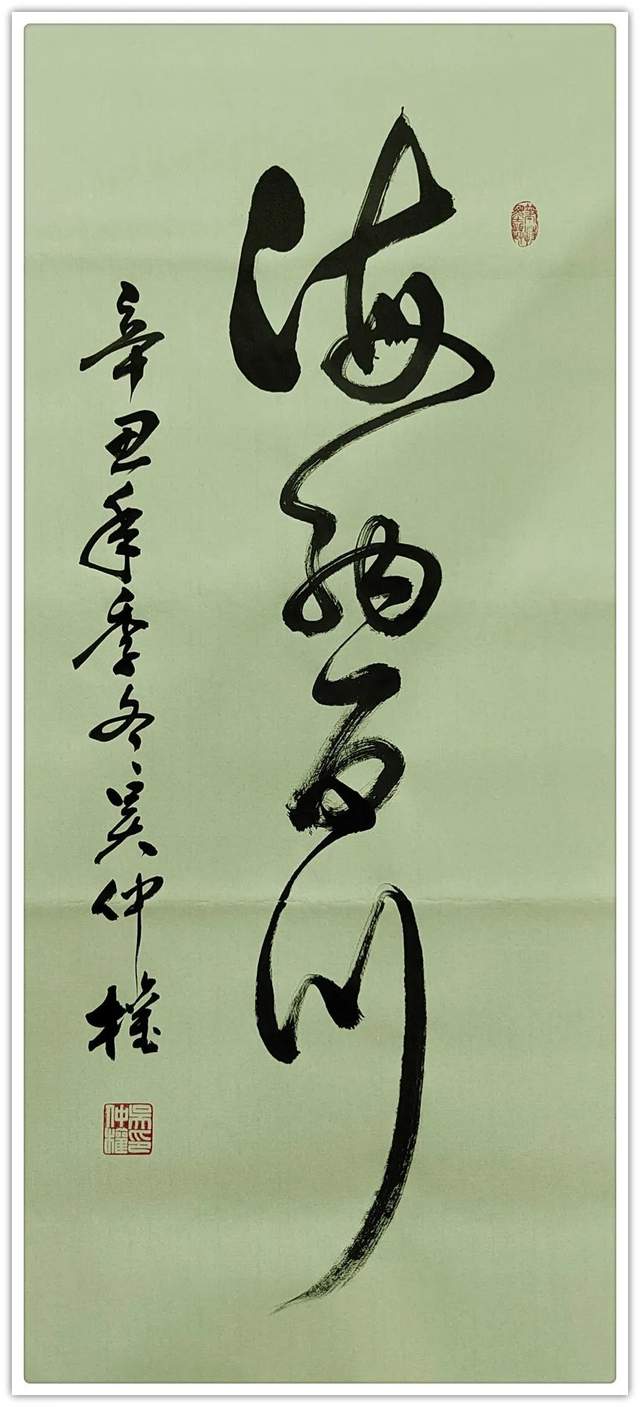 海纳百川
辛丑年季冬吴仲權
吴仲權印